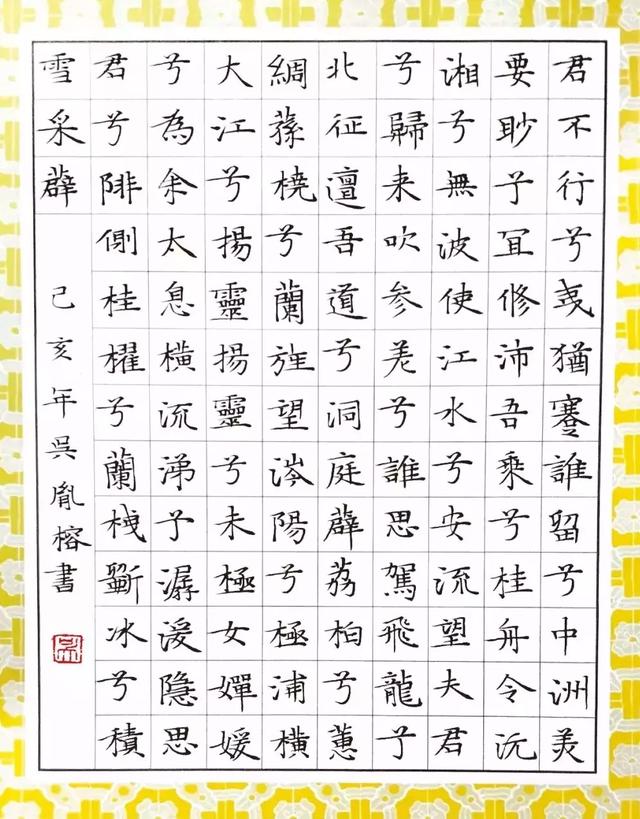 君不行兮夷猶蹇誰留兮中洲美
要眇兮冝修沛吾乘兮桂舟令沅
湘兮無波使江水兮安流望夫君
兮歸来吹参差兮誰思駕飛龍兮
北征邅吾道兮洞庭薜荔柏兮蕙
綢蓀橈兮蘭旌望涔陽兮極浦橫
大江兮揚靈揚靈兮未極女嬋媛
兮為余太息橫流涕予潺湲隱思
君兮陫側桂櫂兮蘭枻斲冰兮積
雪采薜
己亥年吳胤榕書